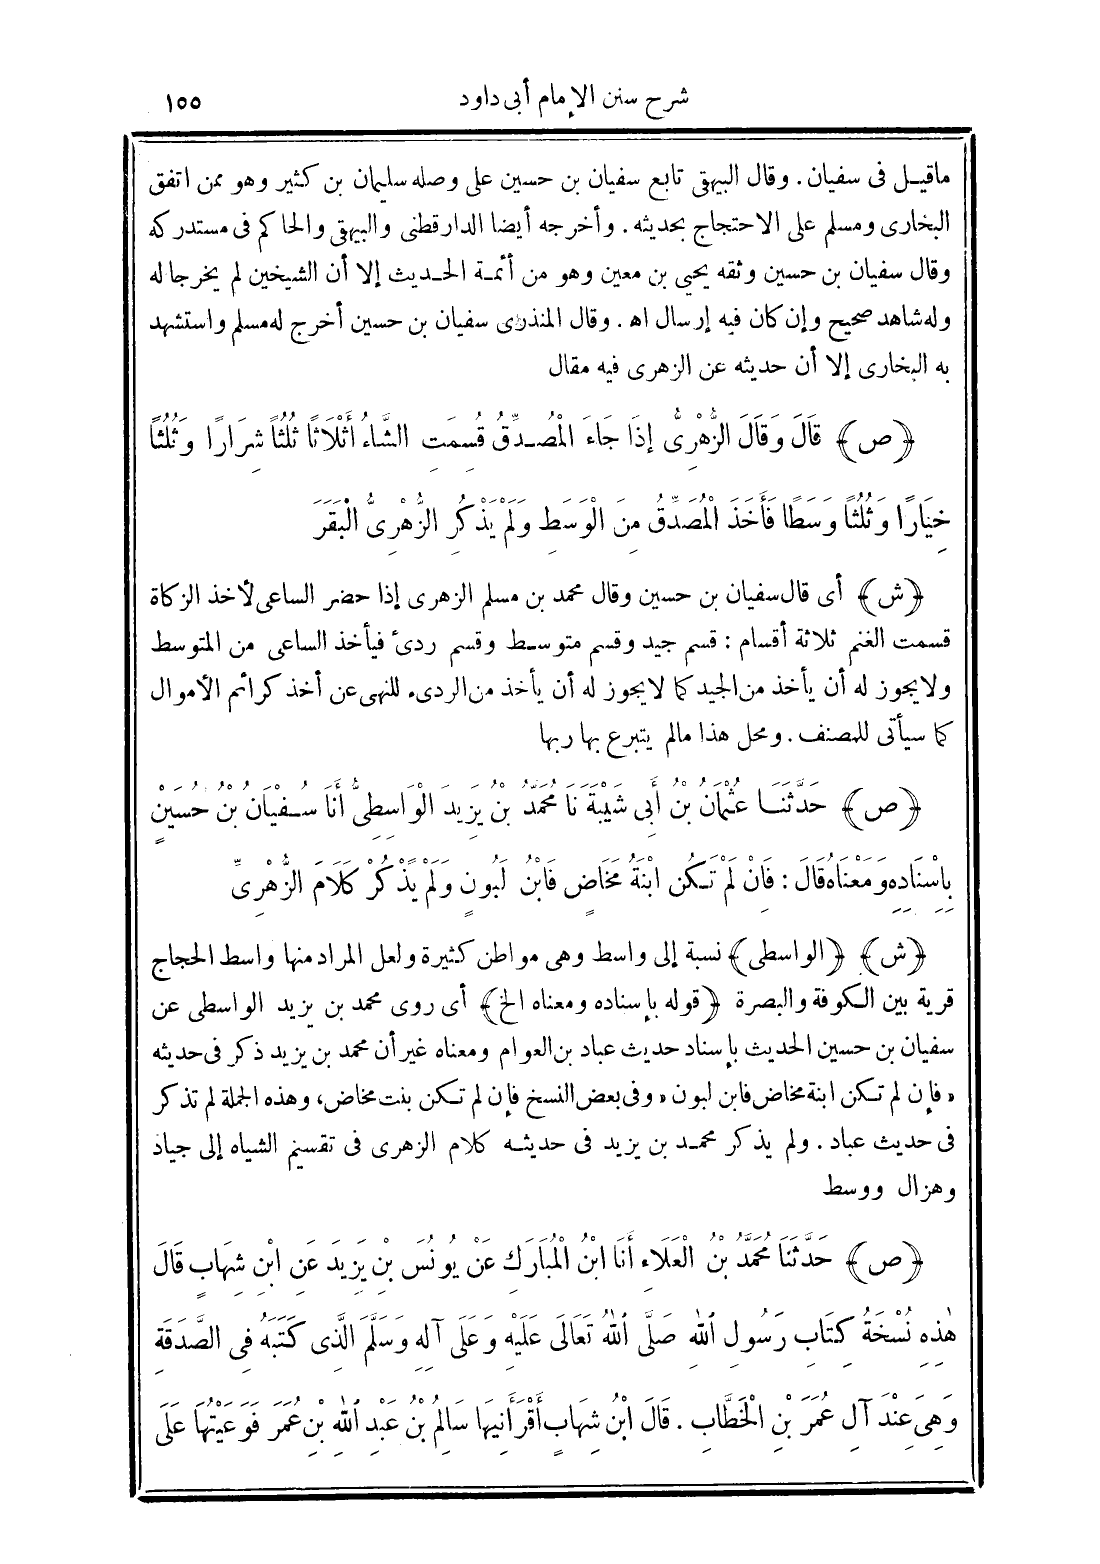 شرح سنن الإمام أبى داود
١٥٥
ماقيل فى سفيان . وقال البيهقى تابع سفيان بن حسين على وصله سليمان بن كثير وهو ممن اتفق
البخارى ومسلم على الاحتجاج بحديثه . وأخرجه أيضا الدارقطنى والبيهقى والحاكم فى مستدركه
وقال سفيان بن حسين وثقه يحيى بن معين وهو من أئمة الحديث إلا أن الشيخين لم يخرجا له
وله شاهد صحيح وإن كان فيه إرسال اه . وقال المنذرى سفيان بن حسين أخرج له مسلم واستشهد
به البخارى إلا أن حديثه عن الزهرى فيه مقال
﴿ص﴾ قَالَ وَقَالَ الزُّهْرِىُّ إِذَا جَاءَ الْمُصَدِّقُ قُسِمَتِ الشَّاءُ أَثْلَاثًا ثُلُثًا شِرَارًا وَثُلُثًا
خِيَارًا وَثُلُثًا وَسَطًا فَأَخَذَ الْمُصَدِّقُ مِنَ الْوَسَطِ وَلَمْ يَذْكُرِ الزُّهْرِىُّ الْبَقَرَ
﴿ش﴾ أى قال سفيان بن حسين وقال محمد بن مسلم الزهرى إذا حضر الساعى لأخذ الزكاة
قسمت الغنم ثلاثة أقسام : قسم جيد وقسم متوسط وقسم ردئ فيأخذ الساعى من المتوسط
ولا يجوز له أن يأخذ من الجيد كما لا يجوز له أن يأخذ من الردىء للنهى عن أخذ كرائم الأموال
كما سيأتى للمصنف . ومحل هذا مالم يتبرع بها ربها
﴿ص﴾ حَدَّثَنَا عُثْمَانُ بْنُ أَبِى شَيْبَةَ نَا مُحَمَّدُ بْنُ يَزِيدَ الْوَاسِطِىُّ أَنَا سُفْيَانُ بْنُ حُسَيْنٍ
بِإِسْنَادِهِ وَمَعْنَاهُ قَالَ : فَإِنْ لَمْ تَكُنِ ابْنَةُ مَخَاضٍ فَابْنُ لَبُونٍ وَلَمْ يَذْكُرْ كَلَامَ الزُّهْرِىِّ
﴿ش﴾ ﴿الواسطى﴾ نسبة إلى واسط وهى مواطن كثيرة ولعل المراد منها واسط الحجاج
قرية بين الكوفة والبصرة ﴿قوله بإسناده ومعناه الخ﴾ أى روى محمد بن يزيد الواسطى عن
سفيان بن حسين الحديث بإسناد حديث عباد بن العوام ومعناه غير أن محمد بن يزيد ذكر فى حديثه
« فإن لم تكن ابنة مخاض فابن لبون » وفى بعض النسخ فإن لم تكن بنت مخاض، وهذه الجملة لم تذكر
فى حديث عباد . ولم يذكر محمد بن يزيد فى حديثه كلام الزهرى فى تقسيم الشياه إلى جياد
وهزال ووسط
﴿ص﴾ حَدَّثَنَا مُحَمَّدُ بْنُ الْعَلَاءِ أَنَا ابْنُ الْمُبَارَكِ عَنْ يُونُسَ بْنِ يَزِيدَ عَنِ ابْنِ شِهَابٍ قَالَ
هٰذِهِ نُسْخَةُ كِتَابِ رَسُولِ اللهِ صَلَّى اللهُ تَعَالَى عَلَيْهِ وَعَلَى آلِهِ وَسَلَّمَ الَّذِى كَتَبَهُ فِى الصَّدَقَةِ
وَهِىَ عِنْدَ آلِ عُمَرَ بْنِ الْخَطَّابِ . قَالَ ابْنُ شِهَابٍ أَقْرَأَنِيهَا سَالِمُ بْنُ عَبْدِ اللهِ بْنِ عُمَرَ فَوَعَيْتُهَا عَلَى